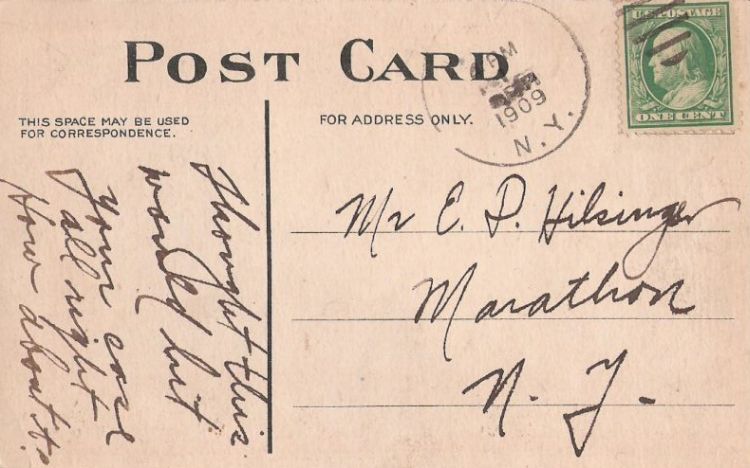 POST CARD
PM
1909
N. Y.
U.S. POSTAGE
ONE CENT
THIS SPACE MAY BE USED
FOR CORRESPONDENCE.
FOR ADDRESS ONLY.
thought this
would hit
your case
all right
How about it?
Mr E. P. Hilsinger
Marathon
N. Y.